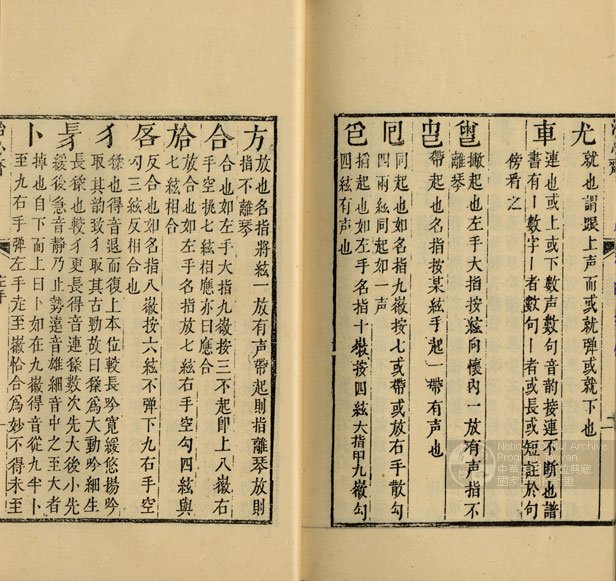 尤
就也謂跟上声而或就弹或就下也
車
連也或上或下數声數句音韵按連不断也譜
書有丨數字丨者數句丨者或長或短註於句
傍看之
撇起也左手大指按絃向懷內一放有声指不
離琴
帶起也名指按某絃手起一帶有声也
同起也如名指九徽按七或帶或放右手散勾
四两絃同起如一声
掐起也如左手名指十徽按四絃大指甲九徽勾
四絃有声也
方
放也名指將絃一放有声帶起則指離琴放則
指不離琴
合
合也如左手大指九徽按三不起卽上八徽右
手空挑七絃相應亦曰應合
放合也如左手名指放七絃右手空勾四絃與
七絃相合
反合也如名指八徽按六絃不弹下九右手空
勾三絃反相合也
犭
猱也得音退而復上本位較長吟寬緩悠揚吟
取其韵致犭取其古勁故曰猱為大動吟細生
長猱也較犭更長得音連猱數次先大後小先
緩後急音静乃止勢遠音雄細音中之至大者
卜
掉也自下而上曰卜如在九徽得音從九半卜
至九右手弹左手走至徽恰合為妙不得未至
National Archive
國家